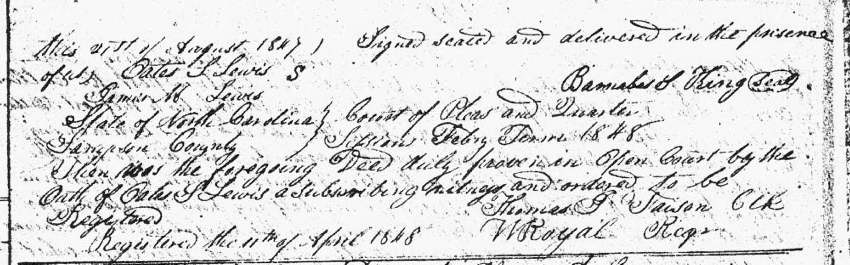 this 21st of August 1847) Signed sealed and delivered in the presence
of us) Oates S Lewis S
Barnabas S King seal.
Lewis
State of North Carolina } Court of Pleas and Quarter
Sampson County } Sessions Feby Term 1848
Then was the foregoing Deed duly proven in Open Court by the
Oath of Oates S Lewis a subscribing witness and ordered to be
Registered Thomas Clk
Registered the 11th of April 1848 W Royal Regr